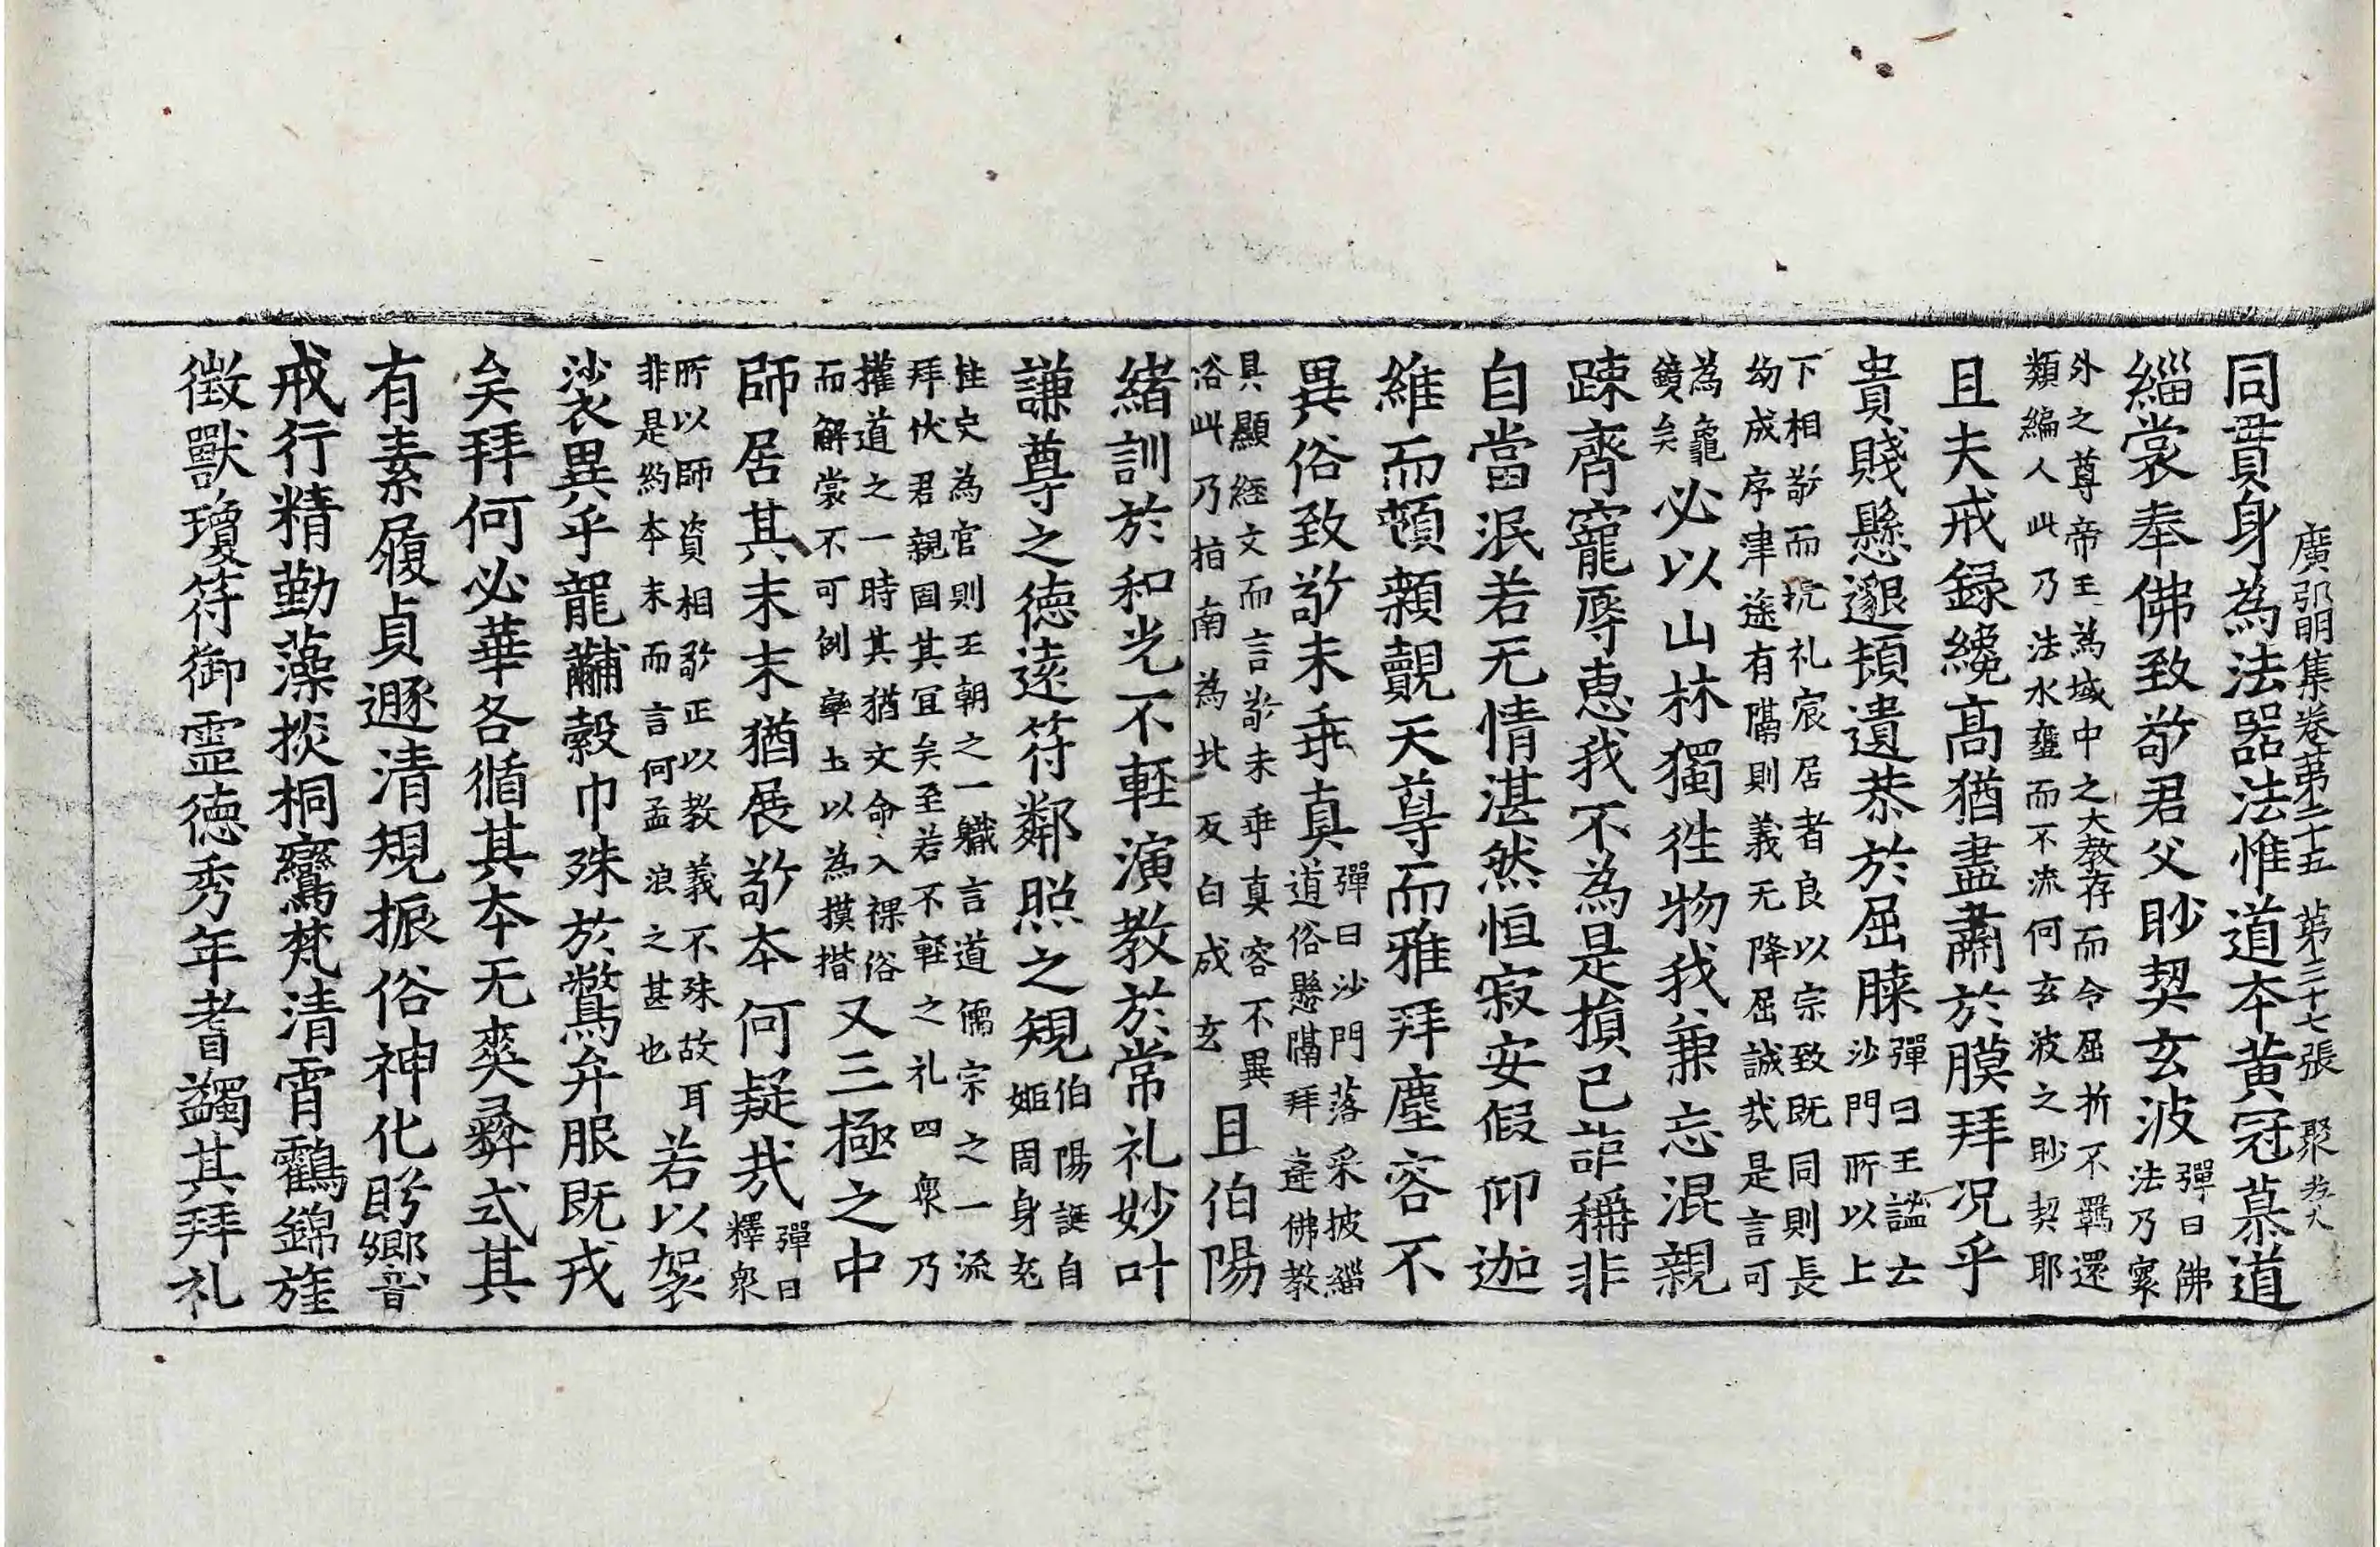 廣弘明集卷第二十五　第三十七張　聚
同貫身為法器法惟道本黄冠慕道
緇裳奉佛致敬君父眇契玄波彈曰佛法乃寰
外之尊帝王為域中之大教存而令屈折不羈還
類編人此乃法水壅而不流何玄波之眇契耶
且夫戒録纔高猶盡肅於膜拜况乎
貴賤懸邈頓遺恭於屈膝彈曰王謐云沙門所以上
下相敬而抗礼宸居者良以宗致既同則長
幼成序津途有隔則義无降屈誠哉是言可
為龜鏡矣必以山林獨徃物我兼忘混親
踈齊寵辱惠我不為是損己詎稱非
自當泯若无情湛然恒寂安假仰迦
維而頓顙覿天尊而雅拜塵容不
異俗致敬未乖真彈曰沙門落采披緇道俗懸隔拜違佛教
具顯經文而言敬未乖真容不異
俗此乃指南為北反白成玄且伯陽
緒訓於和光不輕演教於常礼妙叶
謙尊之德遠符鄰照之規伯陽誕自姬周身充
柱史為官則王朝之一軄言道儒宗之一流
拜伏君親固其宜矣至若不輕之礼四衆乃
攉道之一時其猶文命入裸俗
而解裳不可例率土以為摸揩又三極之中
師居其末末猶展敬本何疑哉彈曰釋衆
所以師資相敬正以教義不殊故耳
非是約本末而言何孟浪之甚也若以袈
裟異乎龍黼縠巾殊於鷩弁服既戎
矣拜何必華各循其本无爽彝式其
有素履貞遯清規振俗神化肹嚮
戒行精勤藻掞桐鸞梵清霄鸖錦旌
徵獸瓊符御靈德秀年耆蠲其拜礼